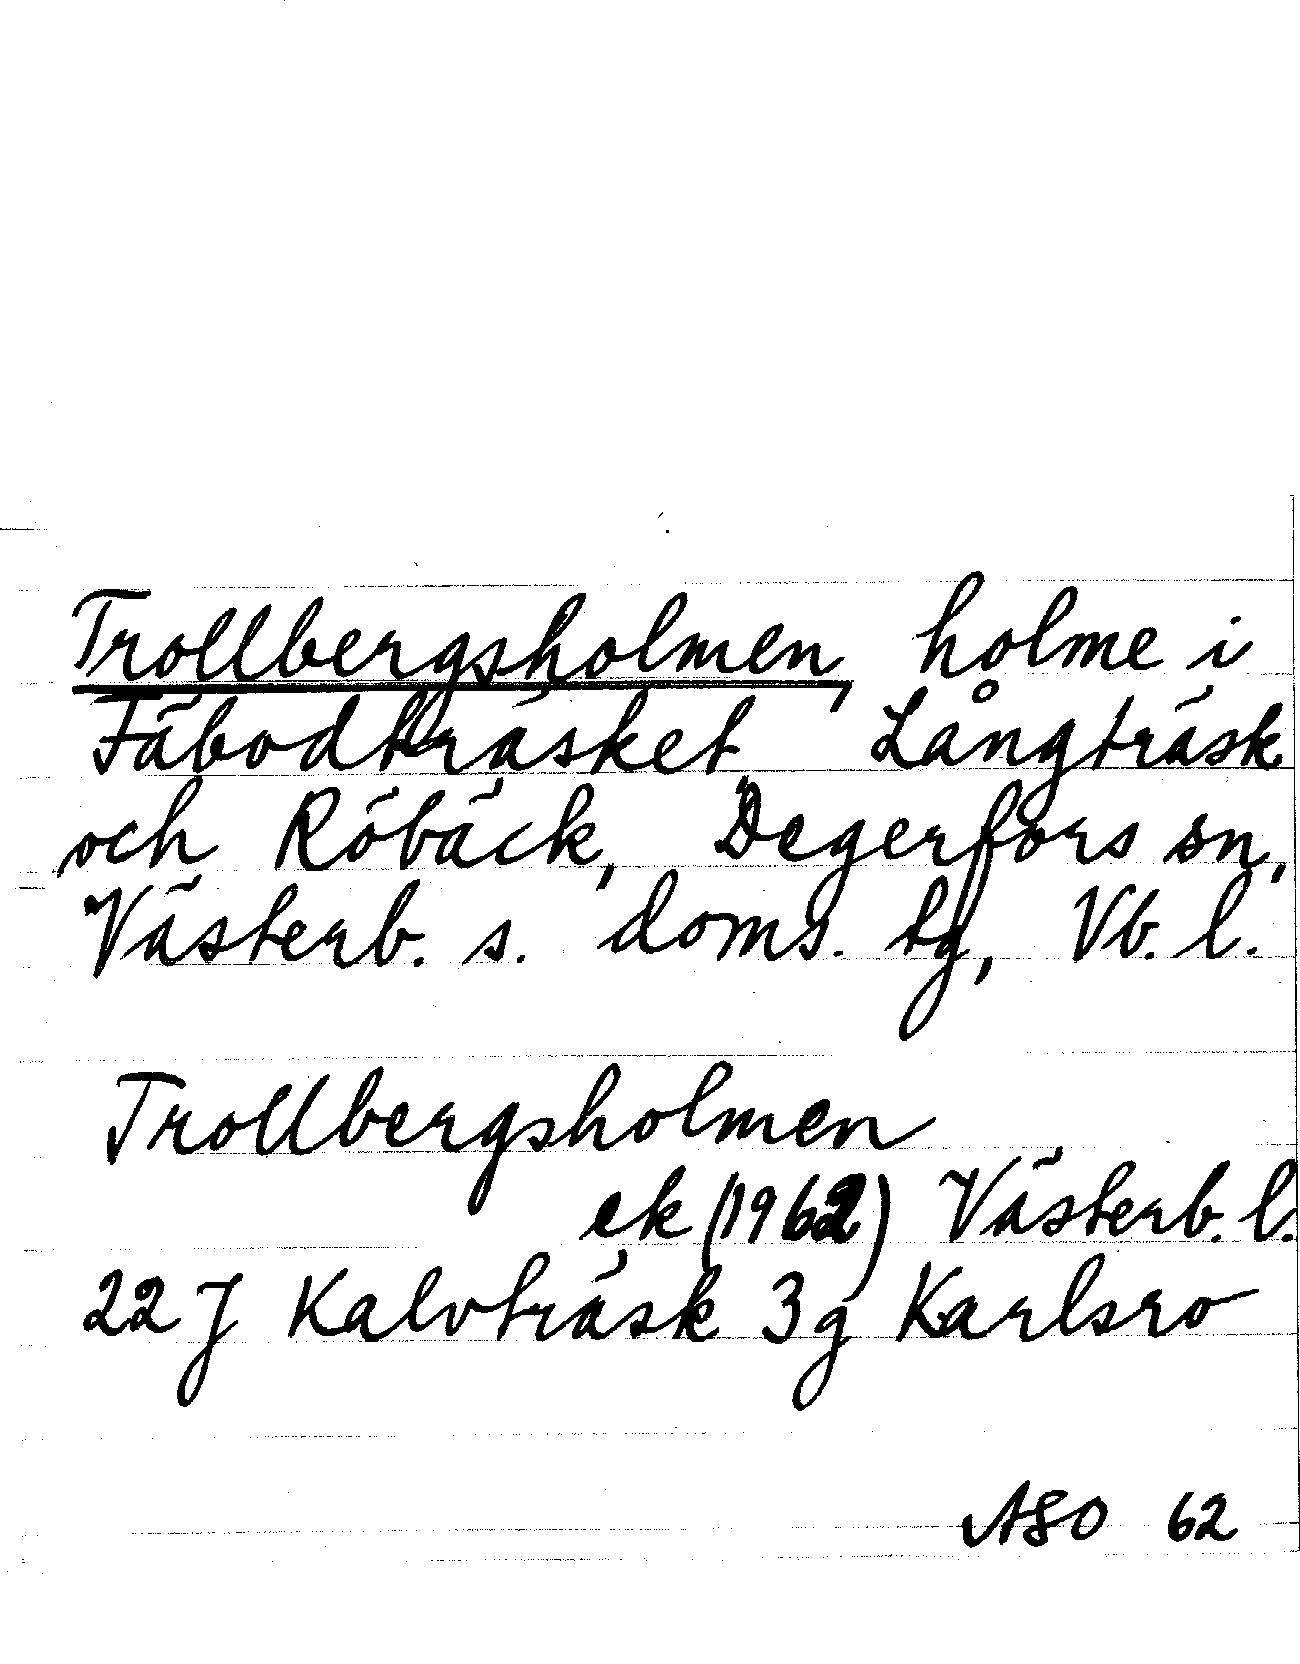 Trollbergsholmen, holme i
Fäbodträsket, Långträsk
och Röbäck, Degerfors sn,
Västerb. s. doms. tg, Vb. l.
Trollbergsholmen
ek (1962) Västerb. l.
22 J Kalvträsk 3g Karlsro
ASO 62